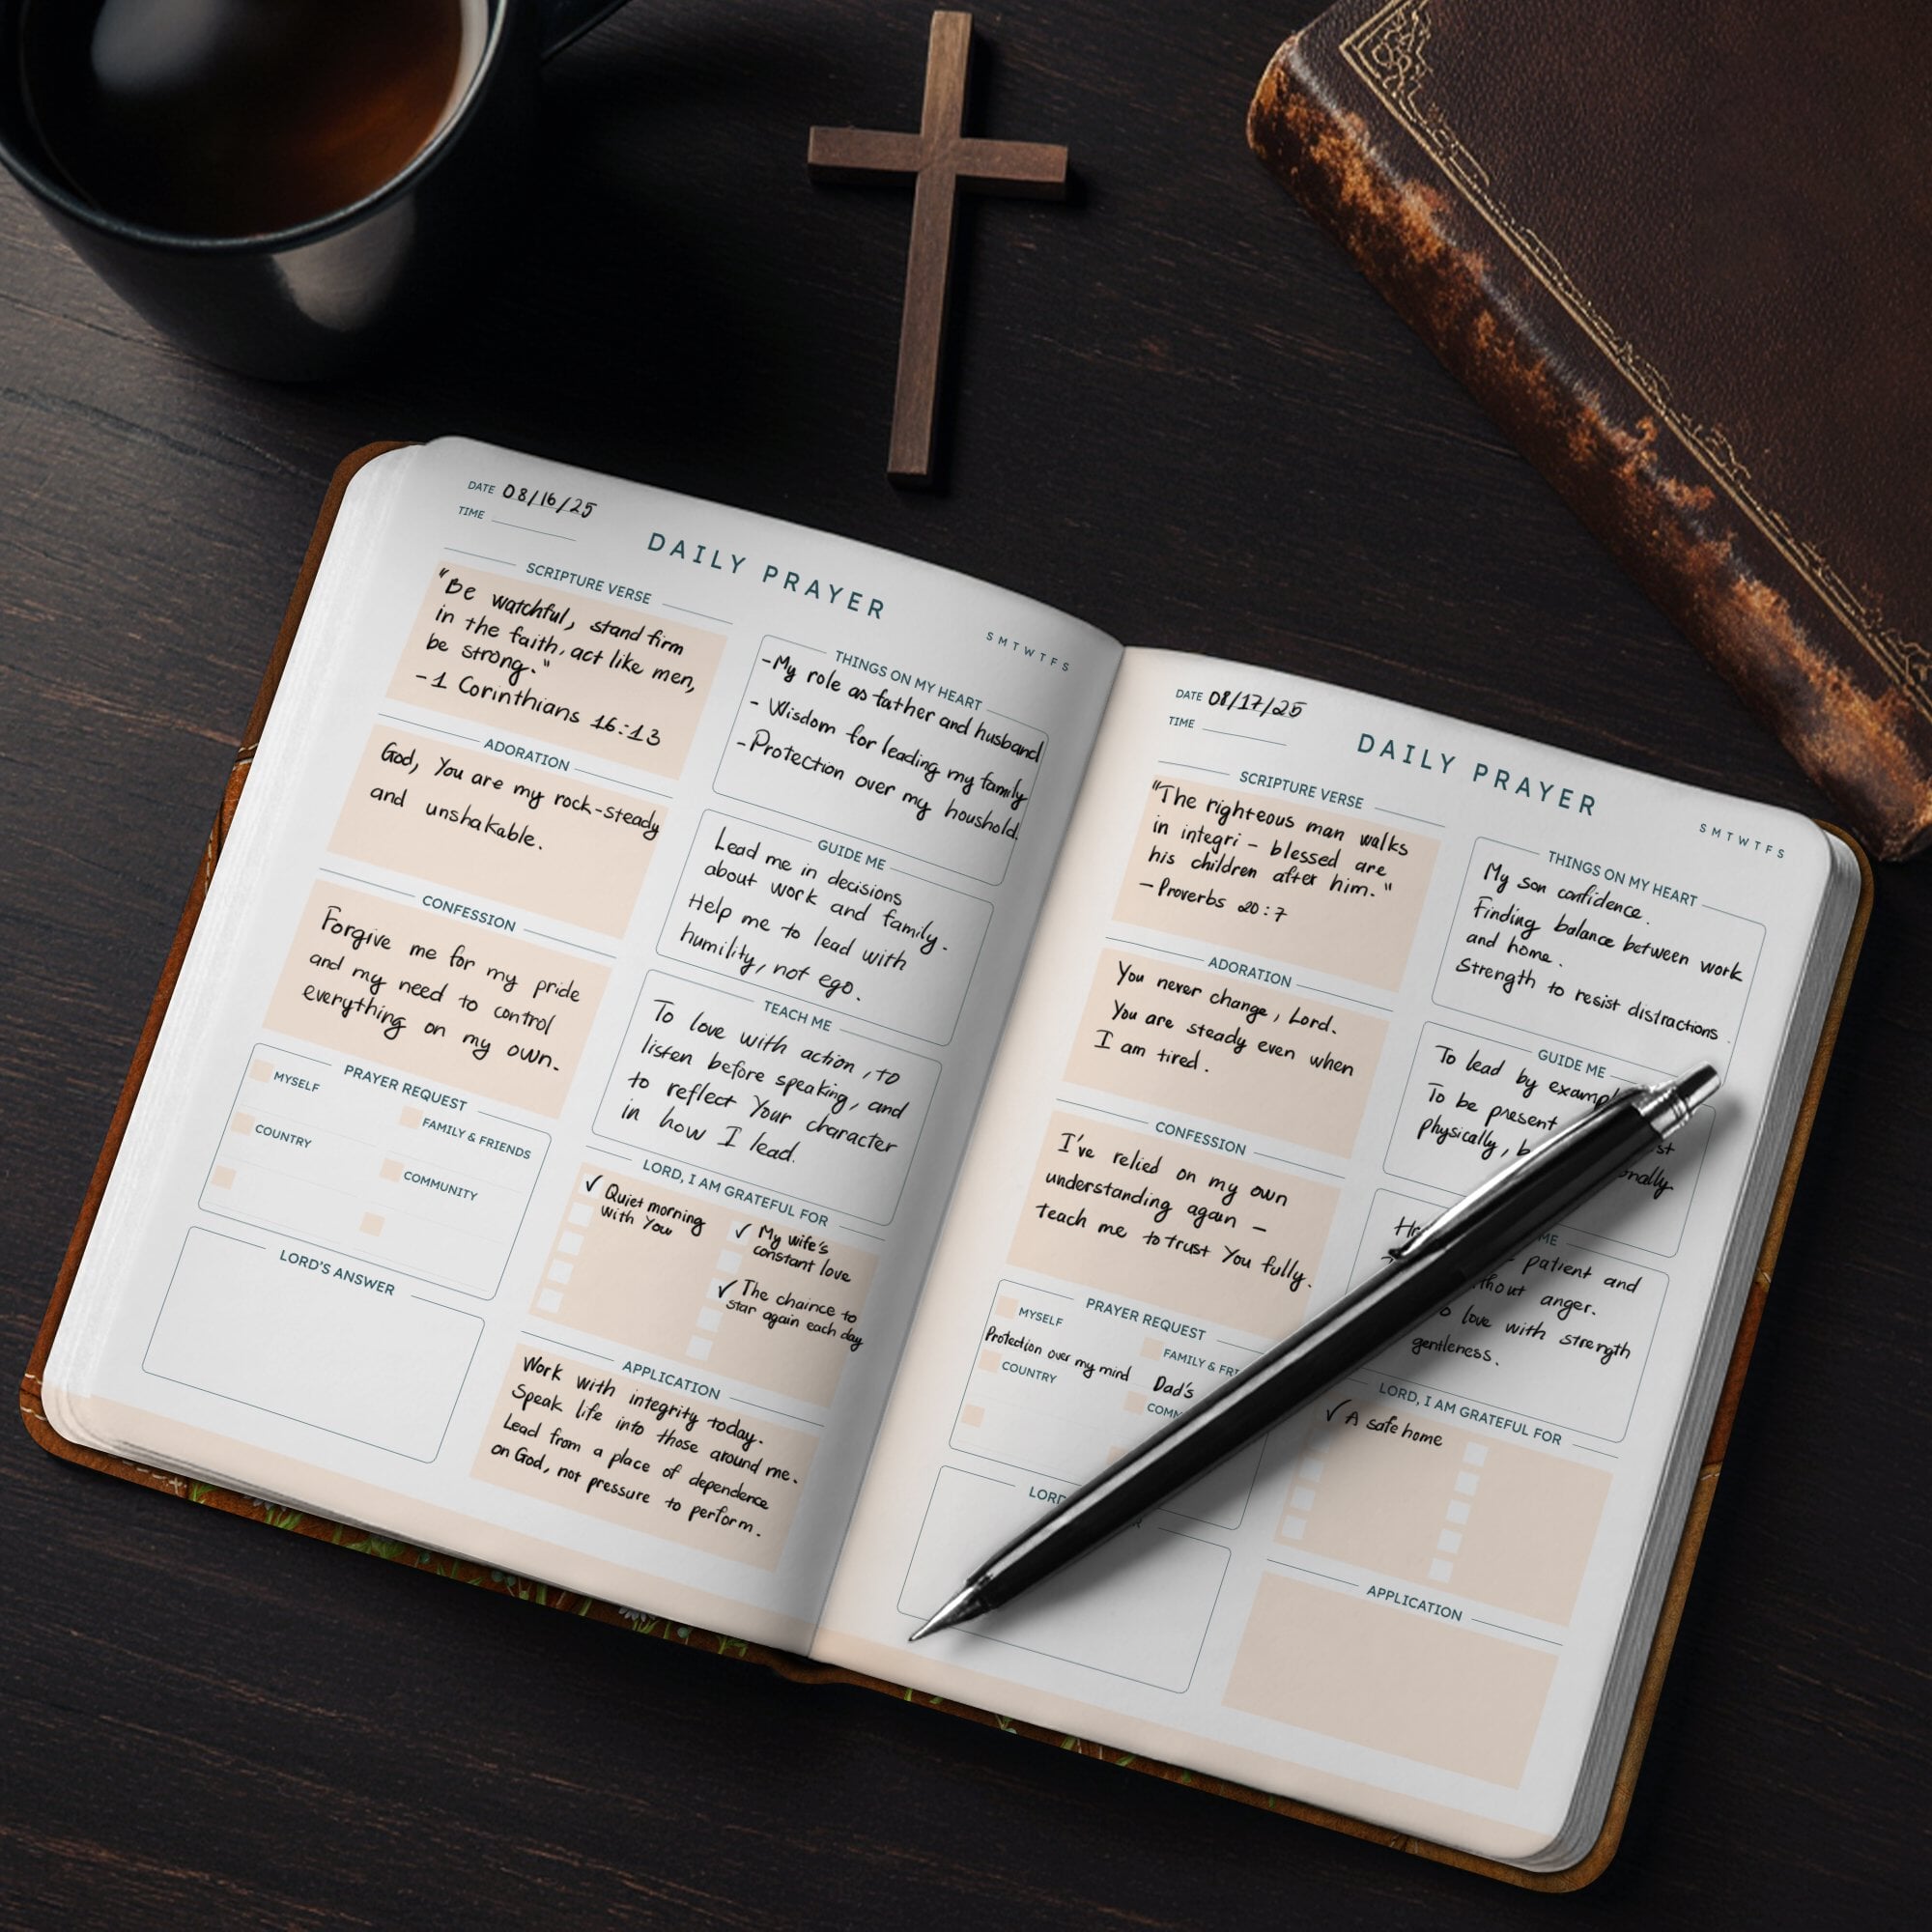 DATE 08/16/25
TIME
DAILY PRAYER
S M T W T F S
SCRIPTURE VERSE
"Be watchful, stand firm
in the faith, act like men,
be strong."
-1 Corinthians 16:13
ADORATION
God, You are my rock-steady
and unshakable.
CONFESSION
Forgive me for my pride
and my need to control
everything on my own.
PRAYER REQUEST
MYSELF
FAMILY & FRIENDS
COUNTRY
COMMUNITY
LORD'S ANSWER
THINGS ON MY HEART
-My role as father and husband
- Wisdom for leading my family
-Protection over my houshold.
GUIDE ME
Lead me in decisions
about work and family.
Help me to lead with
humility, not ego.
TEACH ME
To love with action, to
listen before speaking, and
to reflect Your character
in how I lead.
LORD, I AM GRATEFUL FOR
✓ Quiet morning
with You
✓ My wife's
constant love
✓ The chaince to
star again each day
APPLICATION
Work with integrity today.
Speak life into those around me.
Lead from a place of dependence
on God, not pressure to perform.
DATE 08/17/25
TIME
DAILY PRAYER
S M T W T F S
SCRIPTURE VERSE
"The righteous man walks
in integri - blessed are
his children after him."
- Proverbs 20:7
ADORATION
You never change, Lord.
You are steady even when
I am tired.
CONFESSION
I've relied on my own
understanding again -
teach me to trust You fully.
PRAYER REQUEST
MYSELF
Protection over my mind
FAMILY &
Dad's
COUNTRY
THINGS ON MY HEART
My son confidence.
Finding balance between work
and home.
Strength to resist distractions.
GUIDE ME
To lead by
To be present
physically,
ME
patient and
anger.
love with strength
gentleness.
LORD, I AM GRATEFUL FOR
✓ A safe home
APPLICATION